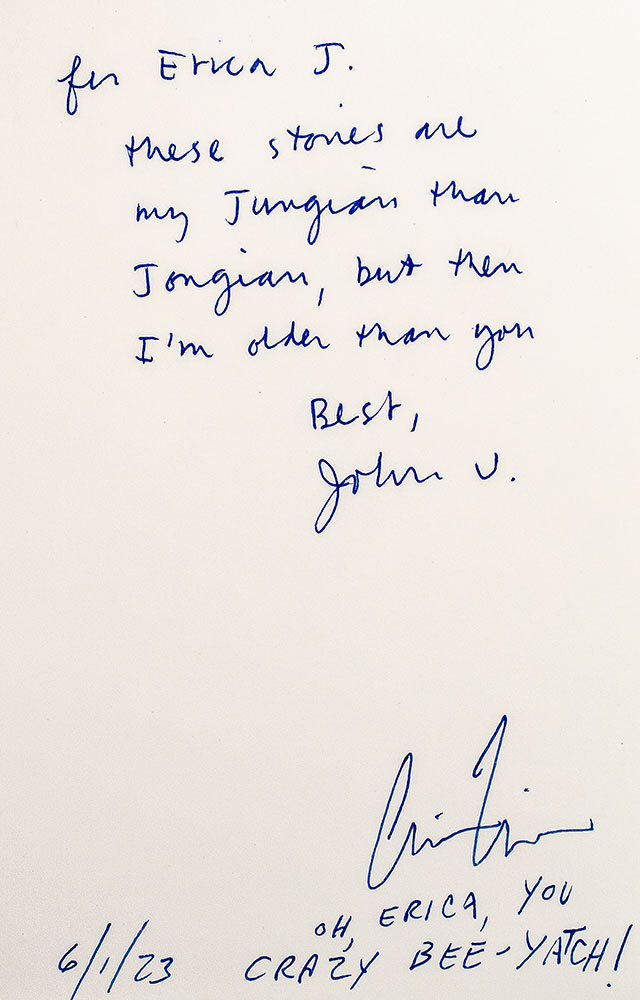 for Erica J.
these stories are
my Jungian than
Jongian, but then
I'm older than you
Best,
John V.
OH, ERICA, YOU
CRAZY BEE-YATCH!
6/1/23